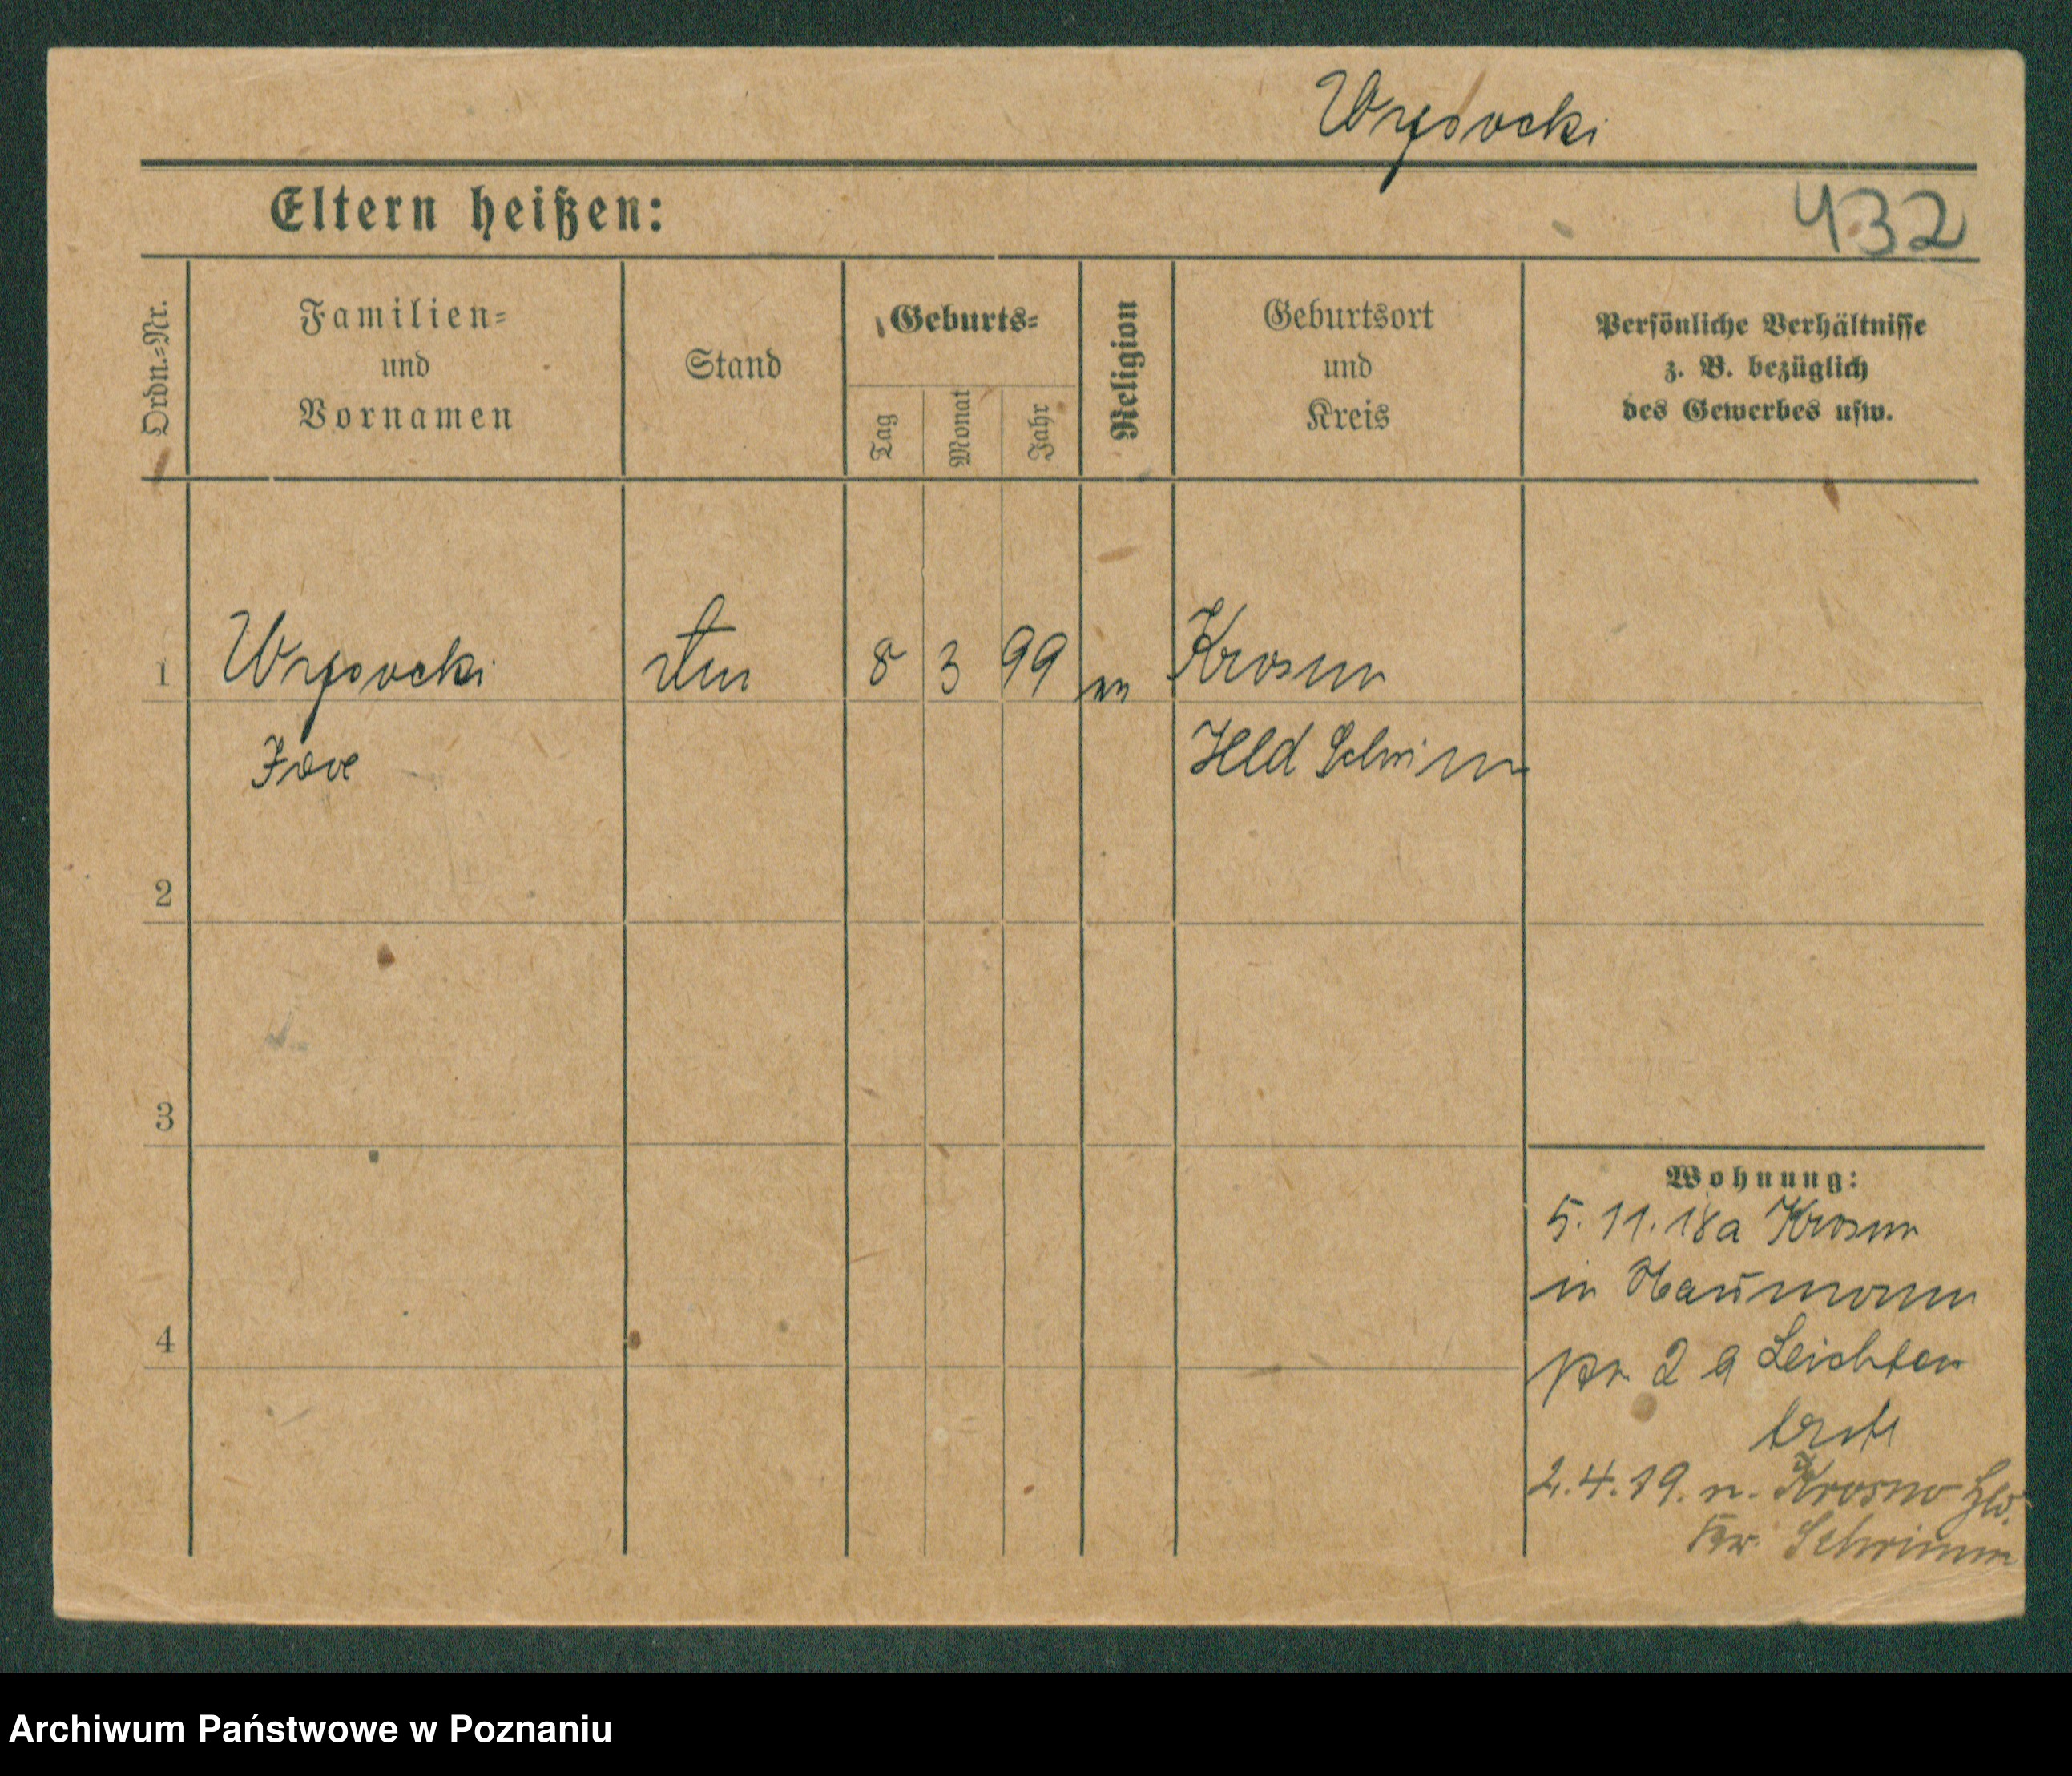 Wrzsocki
Eltern heißen:
432
Ordn.=Nr.
Familien=
und
Vornamen
Stand
Geburts=
Tag
Monat
Jahr
Religion
Geburtsort
und
Kreis
Persönliche Verhältnisse
z. B. bezüglich
des Gewerbes usw.
1
8 3 99
Krosno
Hld Schrimm
2
3
4
Wohnung:
5. 11. 18 a Krosno
in Naumann
2 a Leichten
2. 4. 19. n. Krosno Hld.
Kr. Schrimm
Archiwum Państwowe w Poznaniu